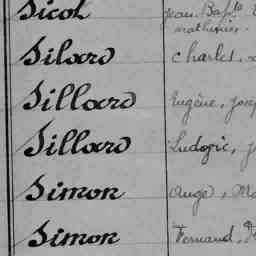 Sicot Jean. Bapte
mathurin.
Silard Charles,
Sillard Eugène, Jose
Sillard Ludovic, J
Simon Ange, Ma
Simon Fernand,